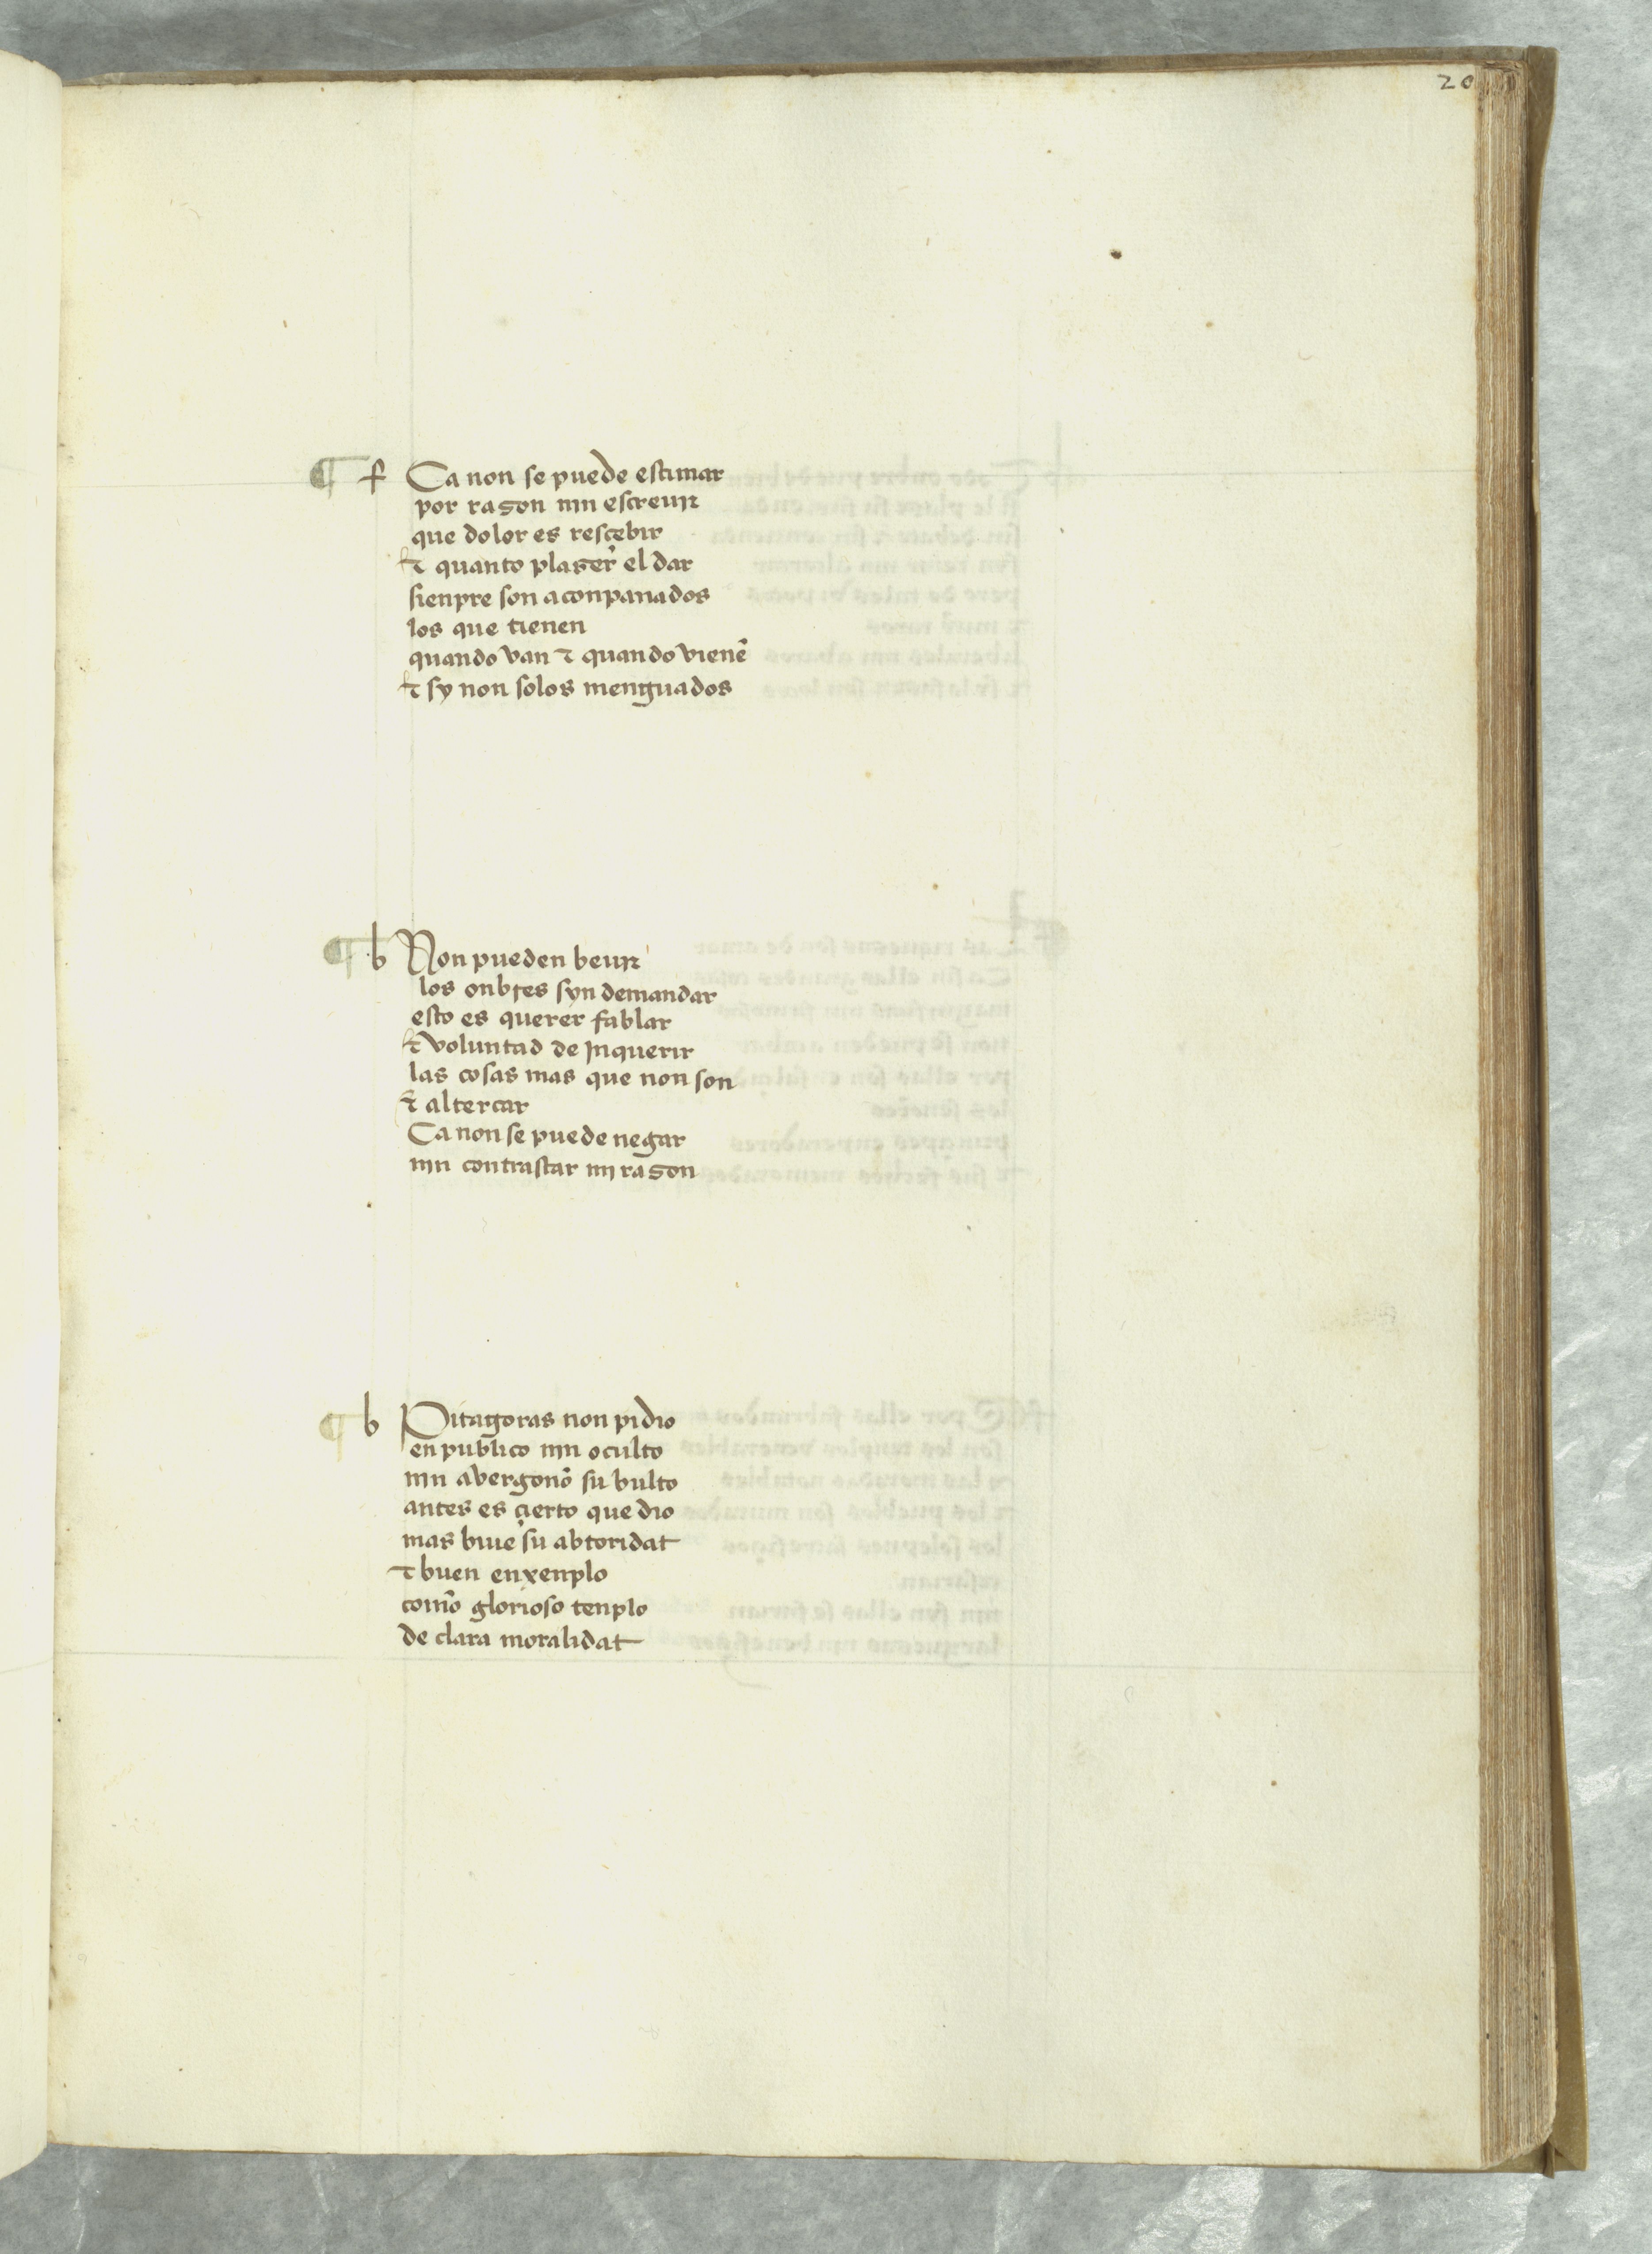 20
¶ f Ca non se puede estimar
por razon nin escreuir
que dolor es resçebir
⁊ quanto plazer el dar
sienpre son aconpanados
los que tienen
quando van ⁊ quando vienẽ
⁊ sy non solos menguados
¶ b Non pueden beuir
los onbres syn demandar
esto es querer fablar
⁊ voluntad de jnquerir
las cosas mas que non son
⁊ altercar
Ca non se puede negar
nin contrastar mj razon
¶ b Pitagoras non pidio
en publico nin oculto
nin avergonõ su bulto
antes es çierto que dio
mas biue su abtoridat
⁊ buen enxenplo
com̃o glorioso tenplo
de clara moralidat